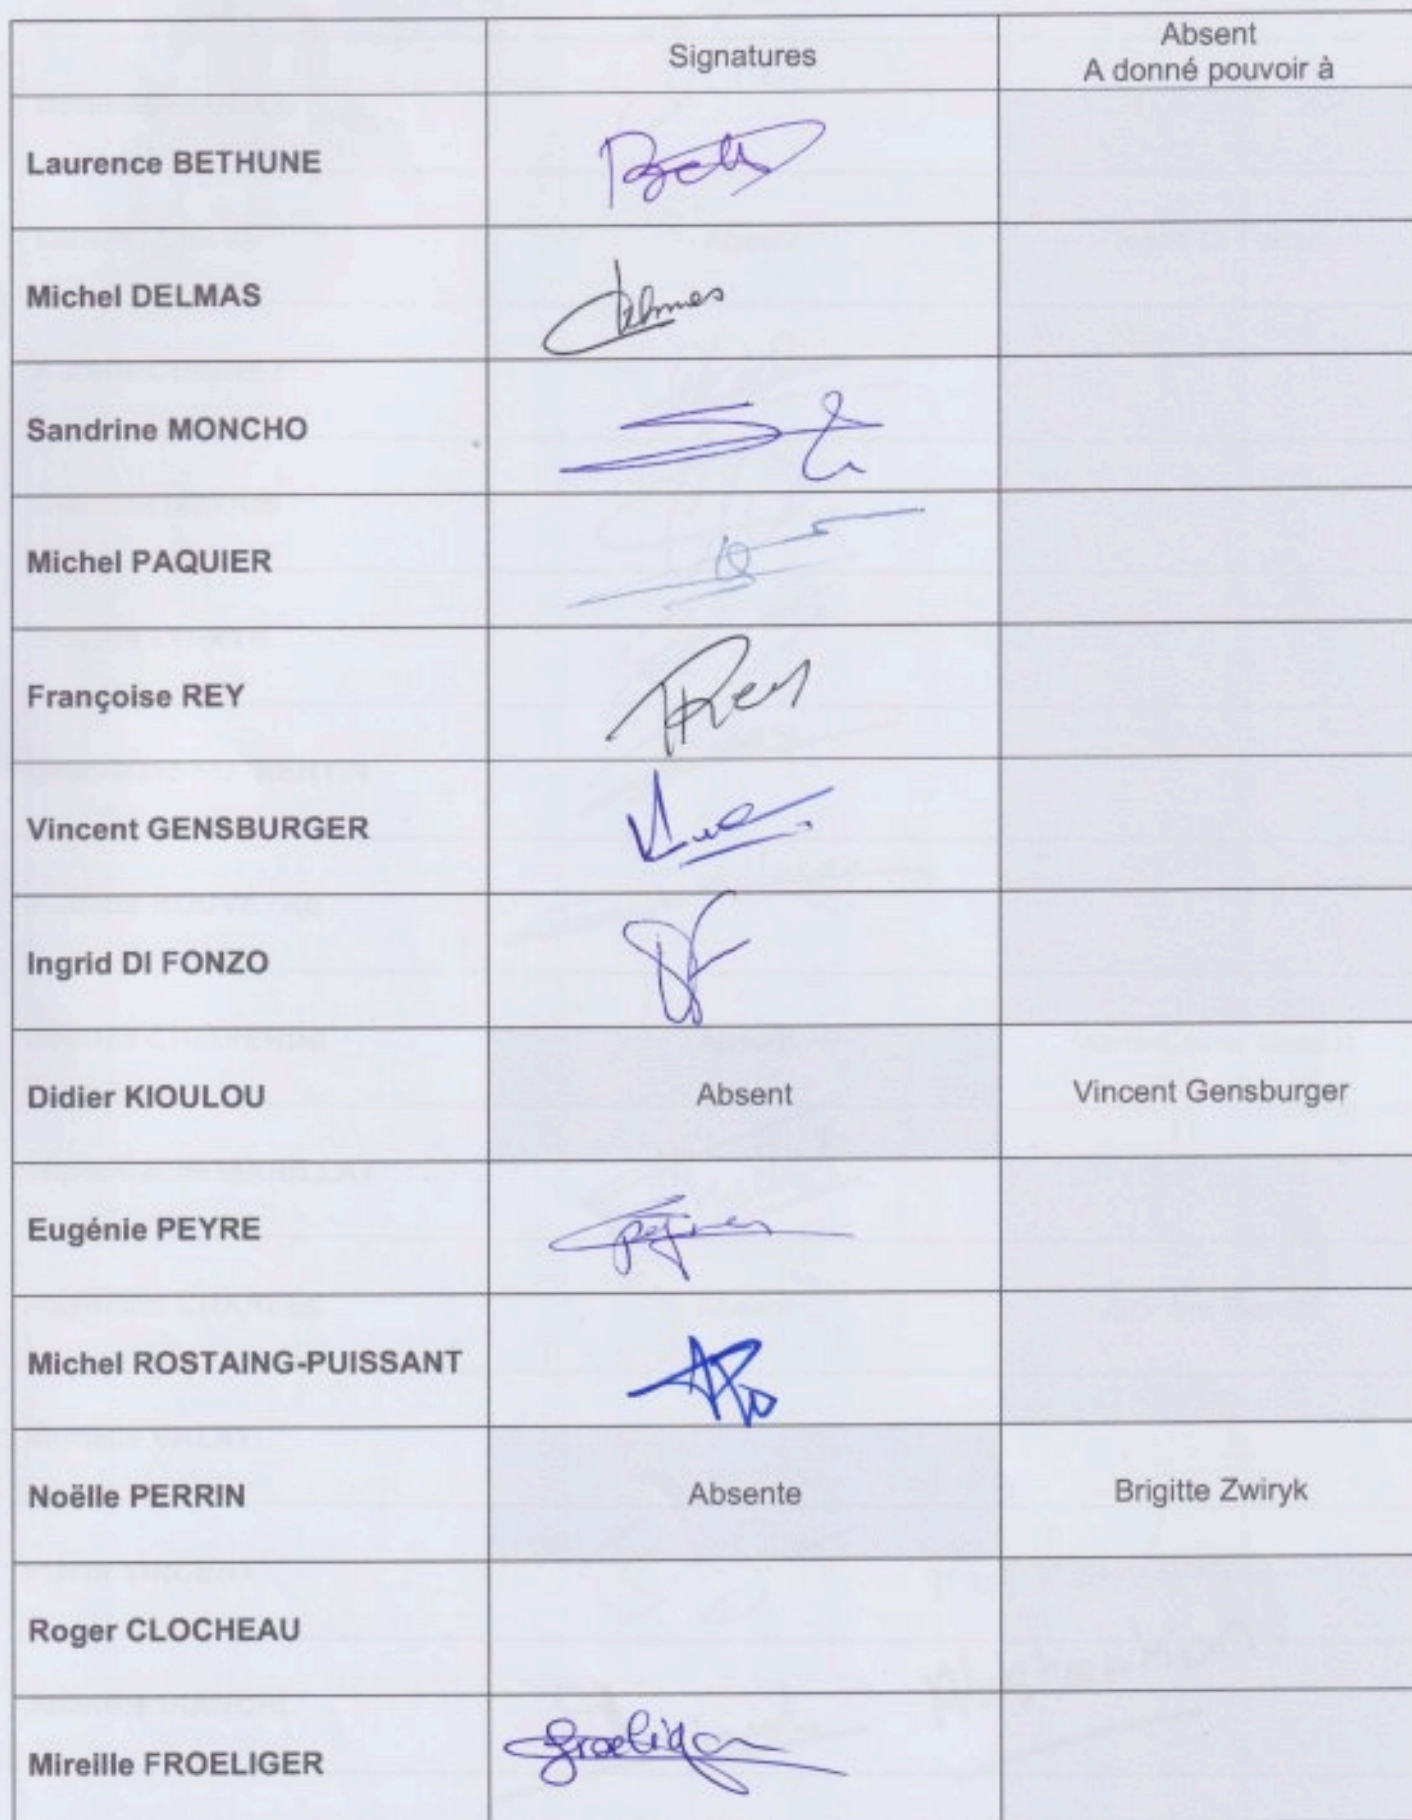 Signatures
Absent
A donné pouvoir à
Laurence BETHUNE
Michel DELMAS
Delmas
Sandrine MONCHO
Michel PAQUIER
Françoise REY
FRey
Vincent GENSBURGER
Ingrid DI FONZO
DF
Didier KIOULOU Absent Vincent Gensburger
Eugénie PEYRE
Michel ROSTAING-PUISSANT
Noëlle PERRIN Absente Brigitte Zwiryk
Roger CLOCHEAU
Mireille FROELIGER
froeliger